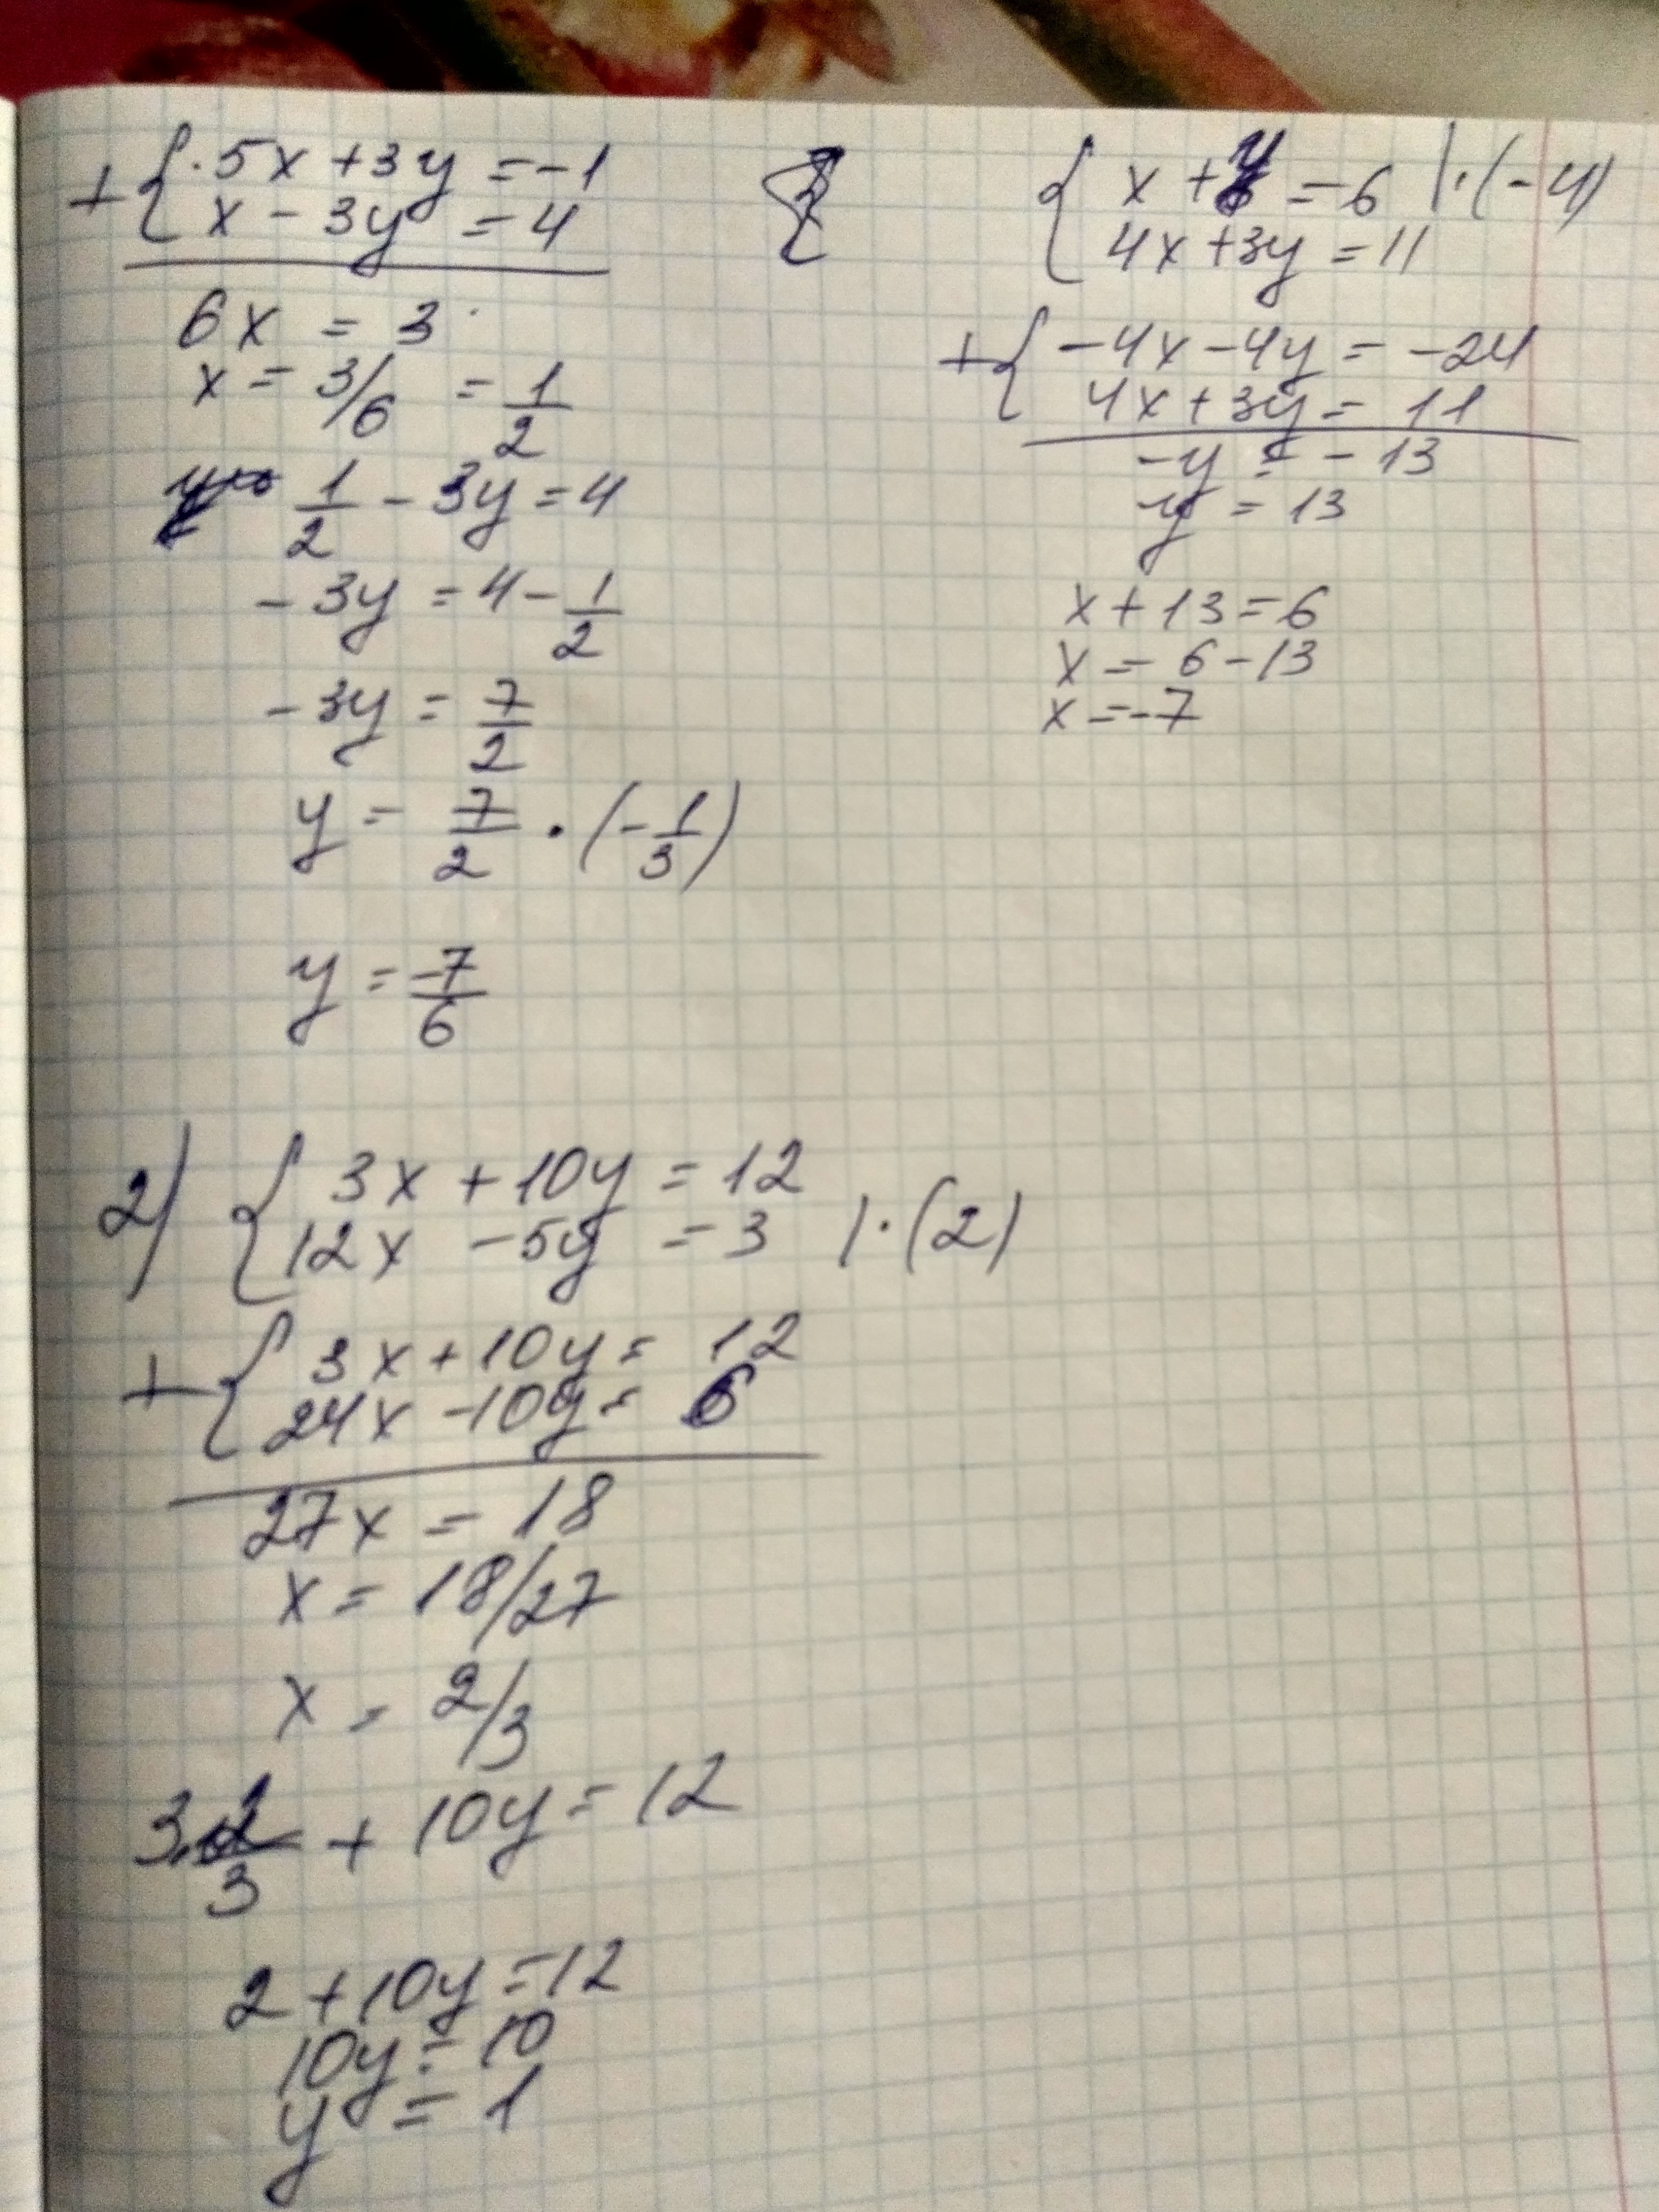 + { 5x + 3y = -1
x - 3y = 4
6x = 3
x = 3/6 = 1/2
1/2 - 3y = 4
-3y = 4 - 1/2
-3y = 7/2
y = 7/2 · (-1/3)
y = -7/6
{ x + y = 6 | · (-4)
4x + 3y = 11
+ { -4x - 4y = -24
4x + 3y = 11
-y = -13
y = 13
x + 13 = 6
x = 6 - 13
x = -7
2) { 3x + 10y = 12
12x - 5y = 3 | · (2)
+ { 3x + 10y = 12
24x - 10y = 6
27x = 18
x = 18/27
x = 2/3
3 · 2/3 + 10y = 12
2 + 10y = 12
10y = 10
y = 1